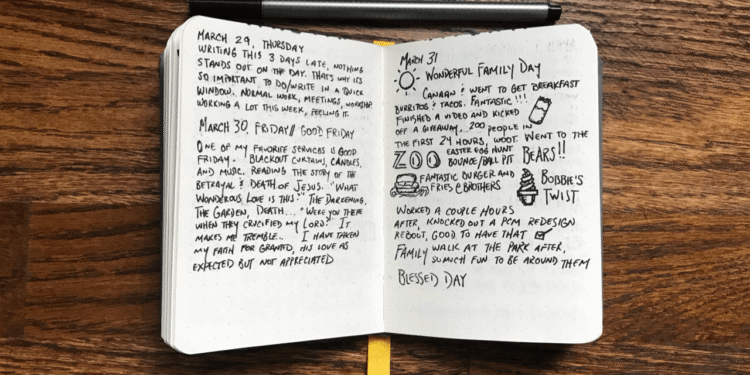 MARCH 29, THURSDAY
WRITING THIS 3 DAYS LATE, NOTHING
STANDS OUT ON THE DAY. THAT'S WHY IT'S
SO IMPORTANT TO DO/WRITE IN A QUICK
WINDOW. NORMAL WORK, MEETINGS, WORKSHOP
WORKING A LOT THIS WEEK, FEELING IT.
MARCH 30, FRIDAY // GOOD FRIDAY
ONE OF MY FAVORITE SERVICES IS GOOD
FRIDAY. BLACKOUT CURTAINS, CANDLES,
AND MUSIC. READING THE STORY OF THE
BETRAYAL & DEATH OF JESUS. "WHAT
WONDEROUS LOVE IS THIS" THE DARKENING,
THE GARDEN, DEATH... "WERE YOU THERE
WHEN THEY CRUCIFIED MY LORD?" IT
MAKES ME TREMBLE... I HAVE TAKEN
MY FAITH FOR GRANTED, HIS LOVE AS
EXPECTED BUT NOT APPRECIATED
MARCH 31
WONDERFUL FAMILY DAY
CANAAN & I WENT TO GET BREAKFAST
BURRITOS & TACOS. FANTASTIC!!!
FINISHED A VIDEO AND KICKED
OFF A GIVEAWAY... 200 PEOPLE IN
THE FIRST 24 HOURS, WOOT. WENT TO THE
ZOO EASTER EGG HUNT
BOUNCE/BALL PIT BEARS!!
FANTASTIC BURGER AND
FRIES @ BROTHERS
BOBBIE'S
TWIST
WORKED A COUPLE HOURS
AFTER, KNOCKED OUT A PCM REDESIGN
REBOOT, GOOD TO HAVE THAT
FAMILY WALK AT THE PARK AFTER,
SO MUCH FUN TO BE AROUND THEM
BLESSED DAY